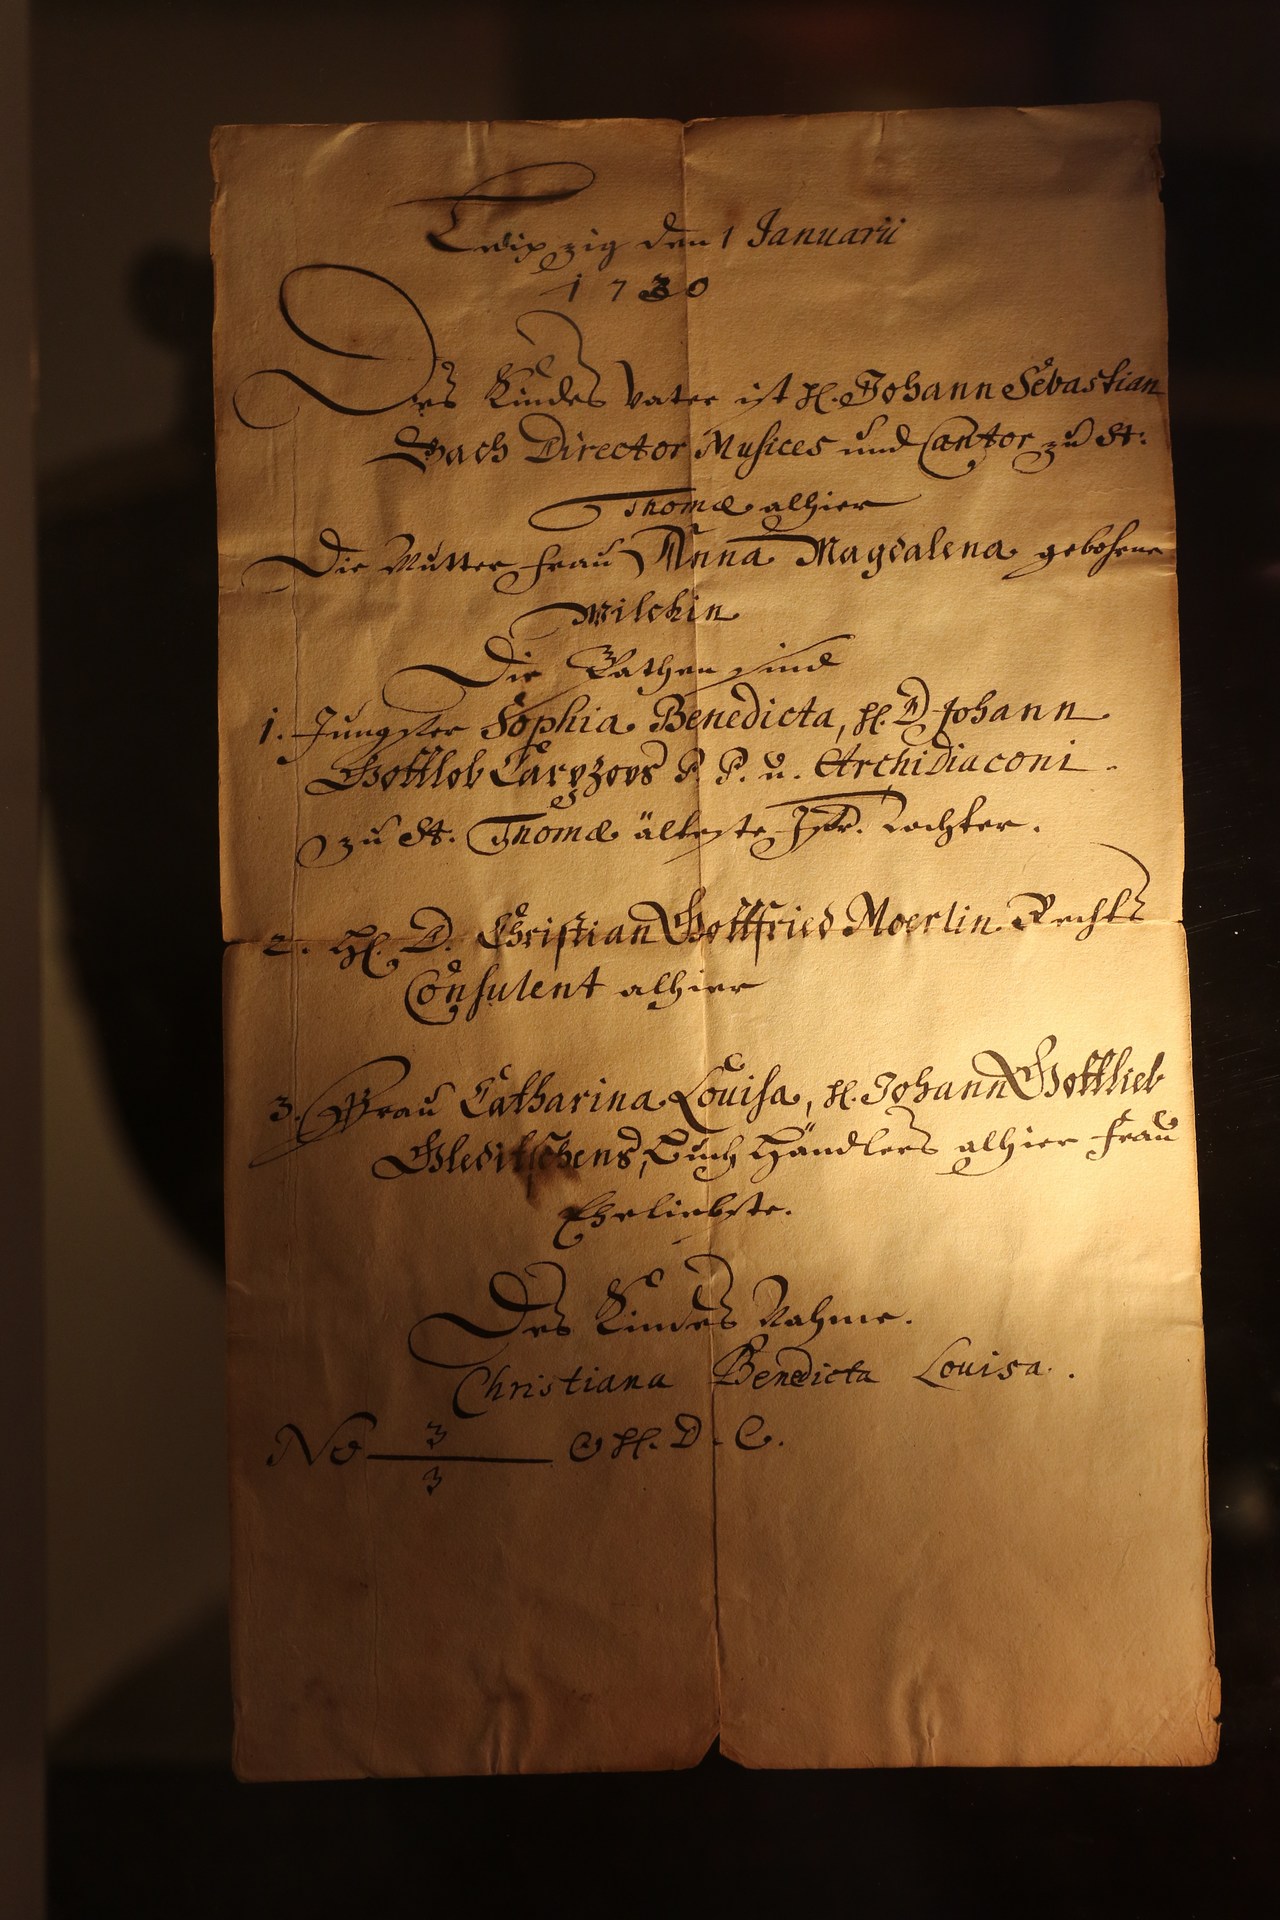 Leipzig den 1 Januarii
1730
Des Kindes Vater ist H. Johann Sebastian
Bach Director Musices und Cantor zu St.
Thomæ alhier
Die Mutter Frau Anna Magdalena gebohrne
Wilckin
Die Pathen sind
1. Jungfer Sophia Benedicta, H. D Johann
Gottlob Carpzovs P. P. u. Archidiaconi
zu St. Thomæ älteste Jgfr. Tochter.
2. H. D. Christian Gottfried Moerlin Rechts
Consulent alhier
3. Frau Catharina Louisa, H. Johann Gottlieb
Gleditschens, Buch Händlers alhier Frau
Eheliebste.
Des Kindes Nahme.
Christiana Benedicta Louisa.
No 3
3
H. D. C.